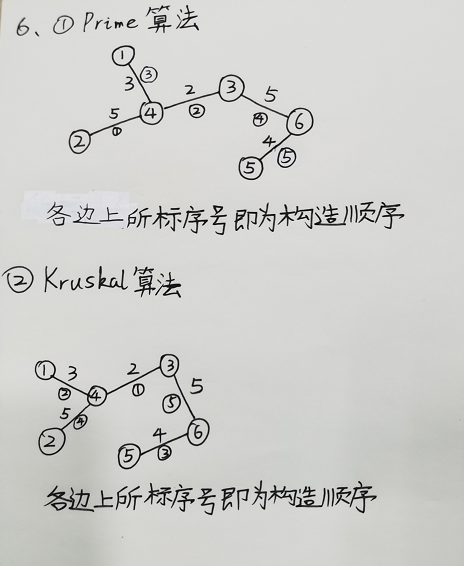 6、① Prime 算法
①
3 ③
2 ③ 5
5 ④ ② ④ ⑥
② ① 4 ⑤
⑤
各边上所标序号即为构造顺序
② Kruskal 算法
① 3 2 ③
② ④ ① 5
5 ④ ⑤
② 4 ⑥
⑤ ③
各边上所标序号即为构造顺序